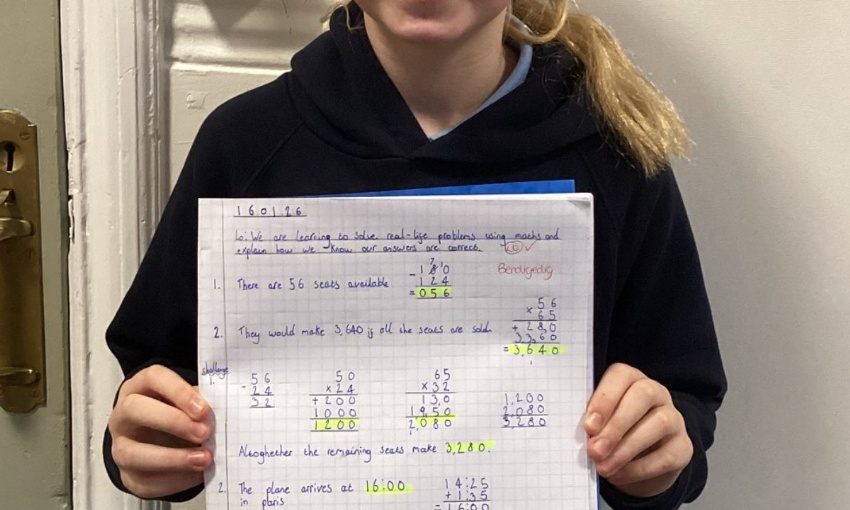 16.01.26
Lo: We are learning to solve real-life problems using maths and
explain how we know our answers are correct.
Bendigedig
1. There are 56 seats available
180
- 124
= 056
2. They would make 3,640 if all the seats are sold.
56
× 65
+ 280
3360
= 3,640
challenge
1.
56
- 24
32
50
× 24
+ 200
1000
1200
65
× 32
130
1950
2080
1,200
2,080
3,280
Altoghether the remaining seats make 3,280.
2. The plane arrives at 16:00
in paris
14:25
+ 1:35
= 16:00